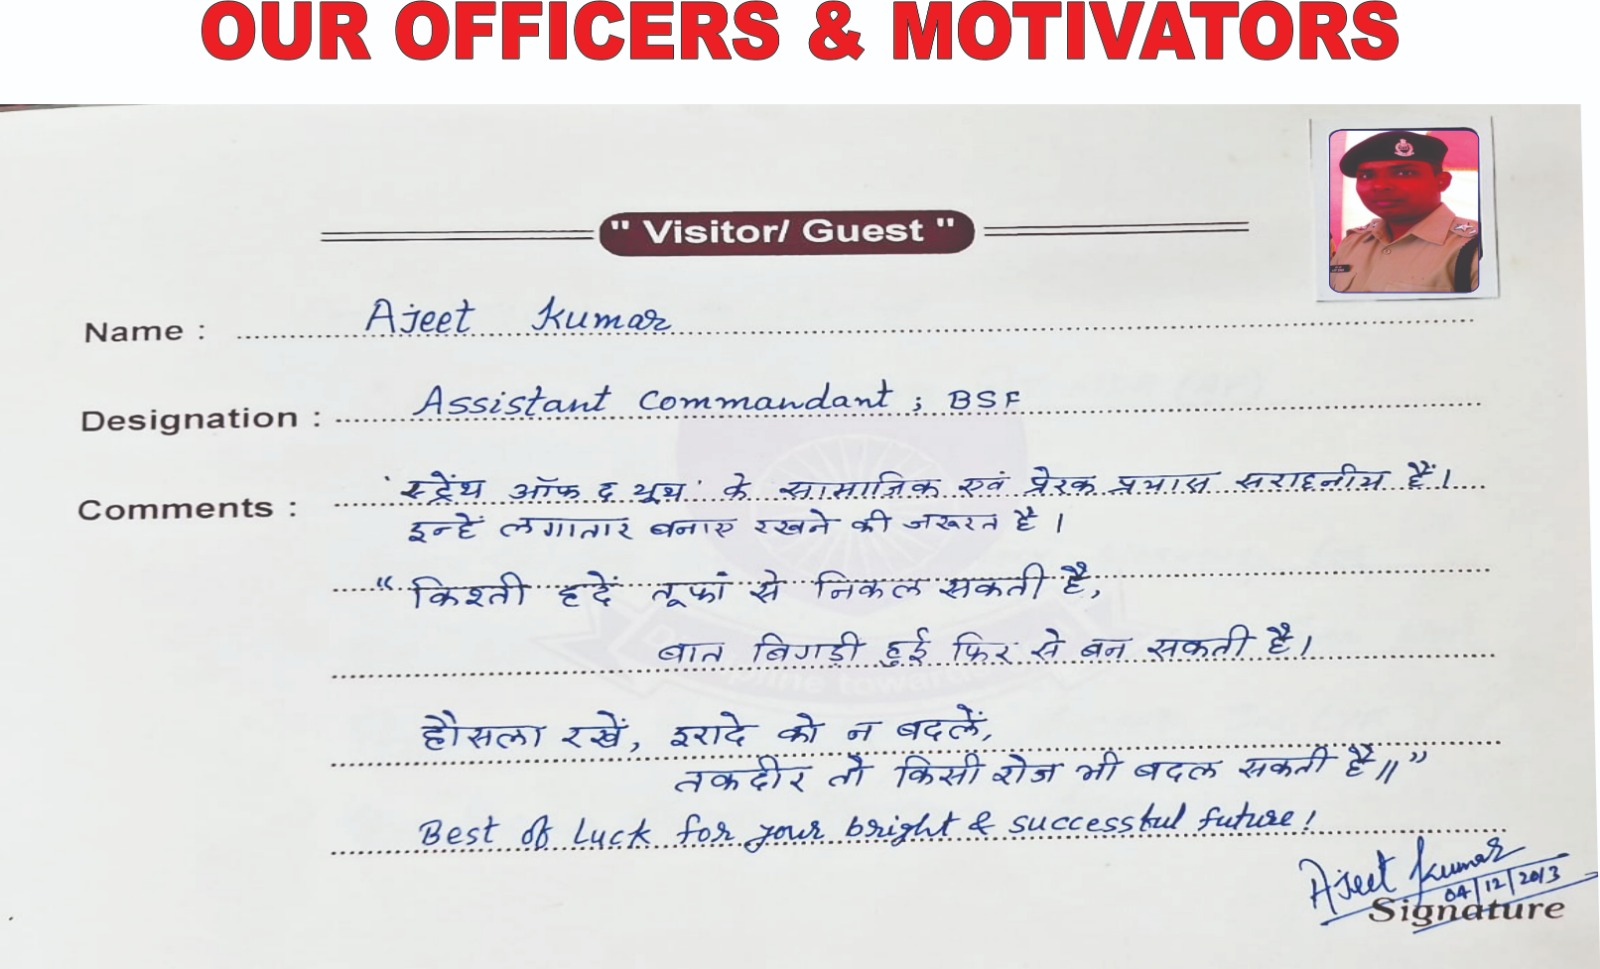 OUR OFFICERS & MOTIVATORS
" Visitor/ Guest "
Name : Ajeet Kumar
Designation : Assistant Commandant ; BSF
Comments : 'स्ट्रेंथ ऑफ द यूथ' के सामाजिक एवं प्रेरक प्रयास सराहनीय हैं।
इन्हें लगातार बनाए रखने की जरूरत है।
“किश्ती हदें तूफां से निकल सकती है,
बात बिगड़ी हुई फिर से बन सकती है।
हौसला रखें, इरादे को न बदलें,
तकदीर तो किसी रोज भी बदल सकती है॥”
Best of Luck for your bright & successful future!
Ajeet Kumar
04/12/2013
Signature